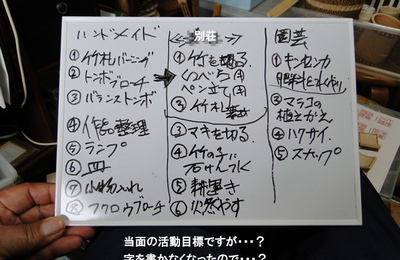 ハンドメイド
①竹札バーニング
②トンボブローチ
③バランストンボ
④作品整理
⑤ランプ
⑥皿
⑦小物入れ
⑧フクロウブローチ
別荘
①竹を切る。
くつべら用
ペン立て用
②竹札集め
③マキを切る。
④竹の子に
⑤耕運キ
⑥火燃やす
園芸
①キンセンカ
③マラコの
植えかえ
④ハクサイ。
⑤スナップ
当面の活動目標ですが・・・?
字を書かなくなったので・・・?